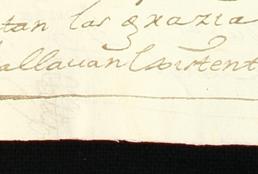 tan las grazia
allavan Existent